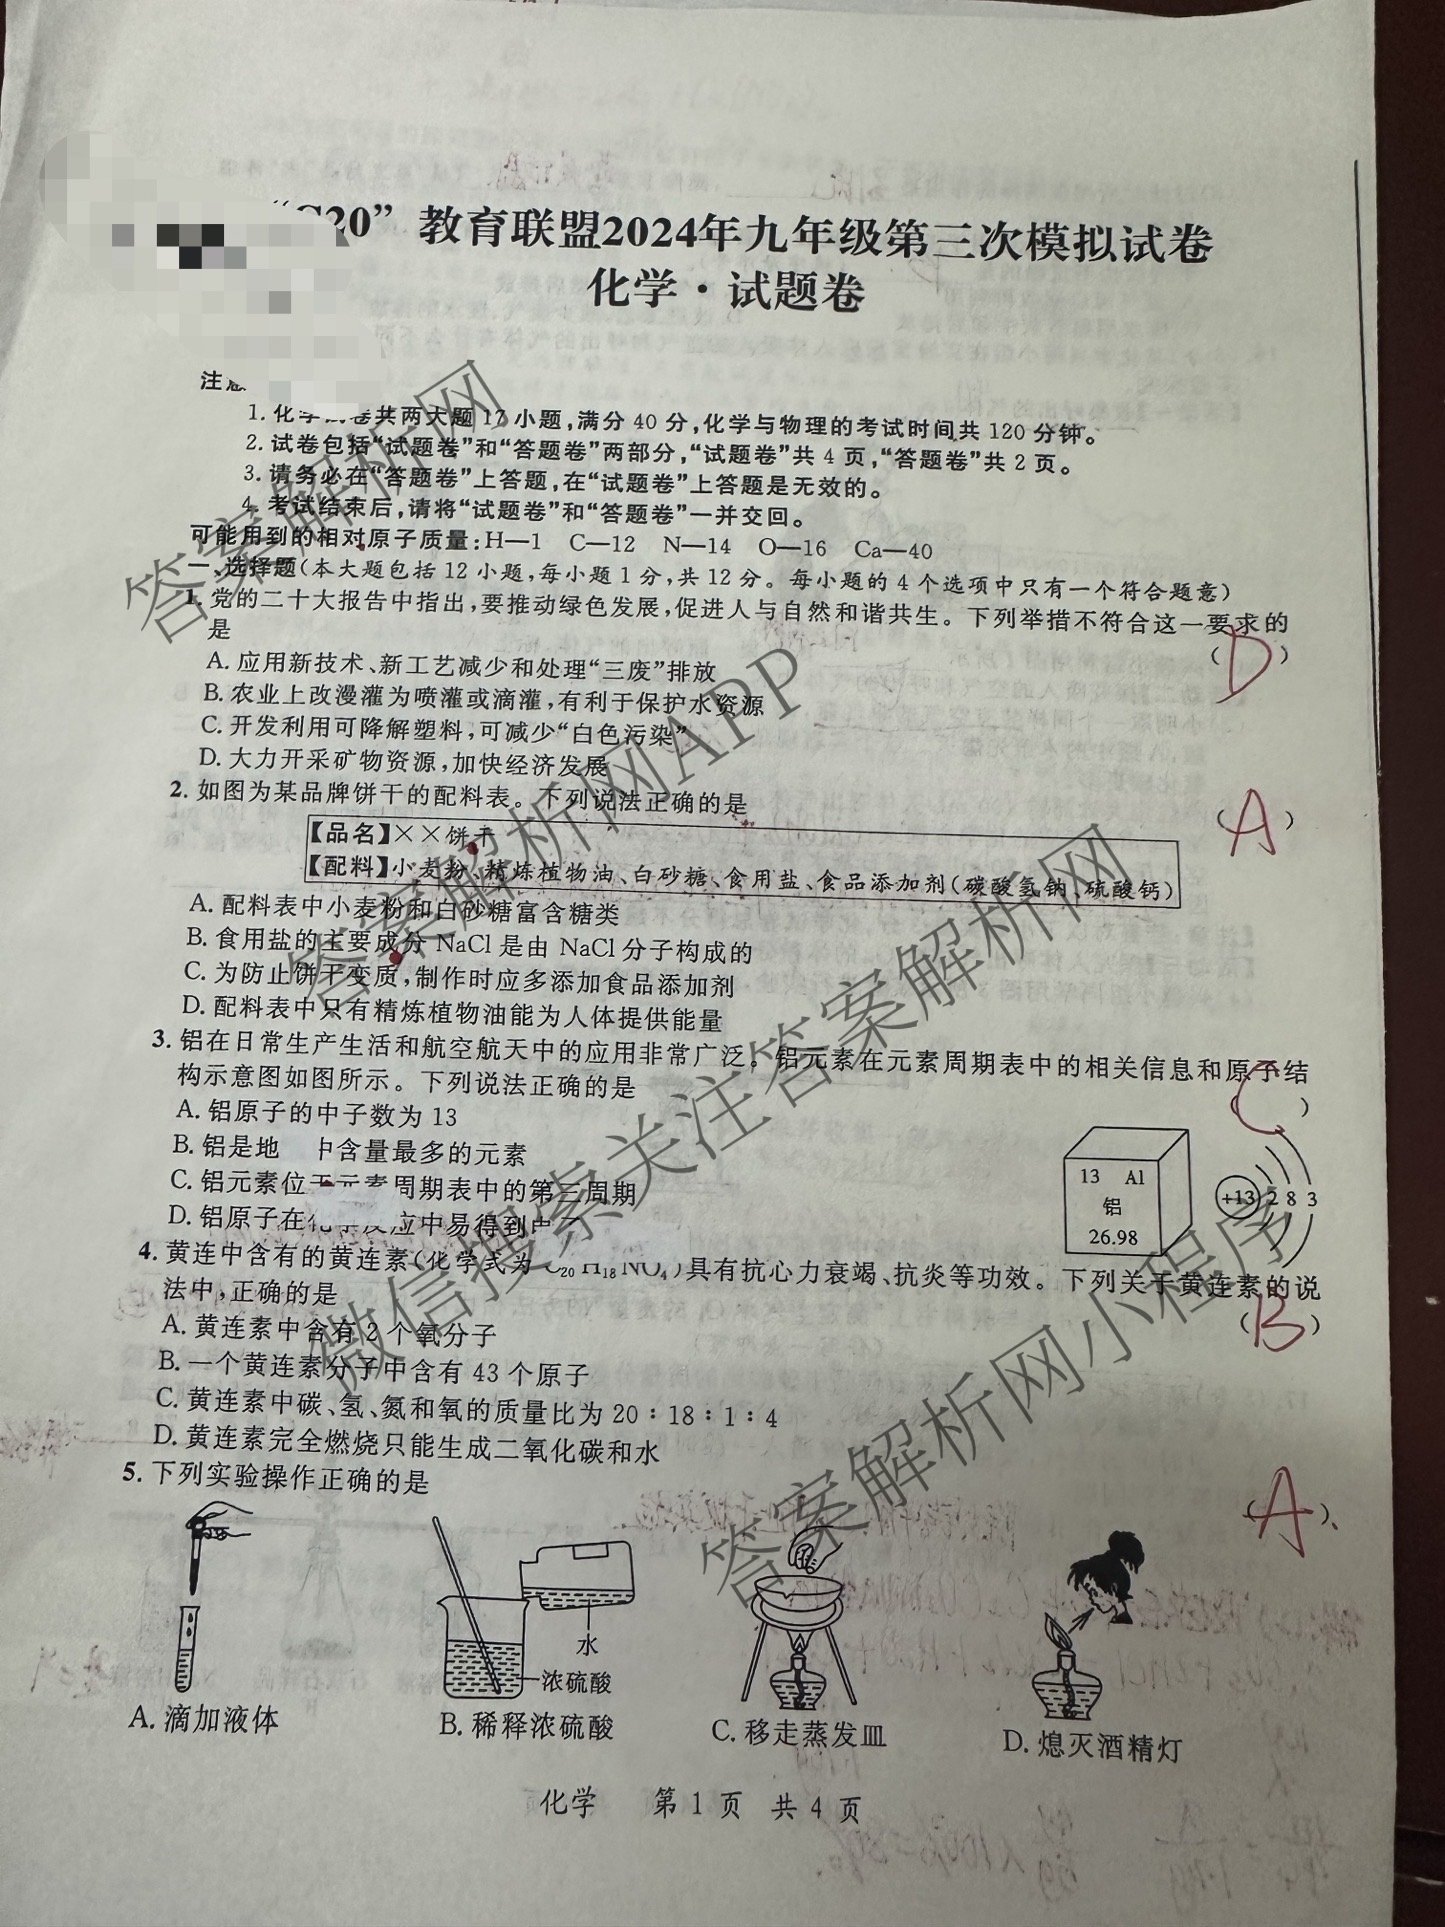 “C20”教育联盟2024年九年级第三次模拟试卷
化学·试题卷
注意
1.化学试卷共两大题17小题,满分40分,化学与物理的考试时间共120分钟。
2.试卷包括“试题卷”和“答题卷”两部分,“试题卷”共4页,“答题卷”共2页。
3.请务必在“答题卷”上答题,在“试题卷”上答题是无效的。
4.考试结束后,请将“试题卷”和“答题卷”一并交回。
可能用到的相对原子质量:H—1 C—12 N—14 O—16 Ca—40
一、选择题(本大题包括12小题,每小题1分,共12分。每小题的4个选项中只有一个符合题意)
1.党的二十大报告中指出,要推动绿色发展,促进人与自然和谐共生。下列举措不符合这一要求的
是 (D)
A.应用新技术、新工艺减少和处理“三废”排放
B.农业上改漫灌为喷灌或滴灌,有利于保护水资源
C.开发利用可降解塑料,可减少“白色污染”
D.大力开采矿物资源,加快经济发展
2.如图为某品牌饼干的配料表。下列说法正确的是 (A)
【品名】××饼干
【配料】小麦粉、精炼植物油、白砂糖、食用盐、食品添加剂(碳酸氢钠、硫酸钙)
A.配料表中小麦粉和白砂糖富含糖类
B.食用盐的主要成分NaCl是由NaCl分子构成的
C.为防止饼干变质,制作时应多添加食品添加剂
D.配料表中只有精炼植物油能为人体提供能量
3.铝在日常生产生活和航空航天中的应用非常广泛。铝元素在元素周期表中的相关信息和原子结
构示意图如图所示。下列说法正确的是 (C)
A.铝原子的中子数为13
B.铝是地 中含量最多的元素
C.铝元素位于元素周期表中的第三周期
D.铝原子在化学反应中易得到电子
13 Al
铝
26.98
+13 2 8 3
4.黄连中含有的黄连素(化学式为C₂₀H₁₈NO₄)具有抗心力衰竭、抗炎等功效。下列关于黄连素的说
法中,正确的是 (B)
A.黄连素中含有2个氧分子
B.一个黄连素分子中含有43个原子
C.黄连素中碳、氢、氮和氧的质量比为20:18:1:4
D.黄连素完全燃烧只能生成二氧化碳和水
5.下列实验操作正确的是 (A)
水
浓硫酸
A.滴加液体
B.稀释浓硫酸
C.移走蒸发皿
D.熄灭酒精灯
化学 第1页 共4页
答案解析网
答案解析网APP
微信搜索关注答案解析网
答案解析网小程序